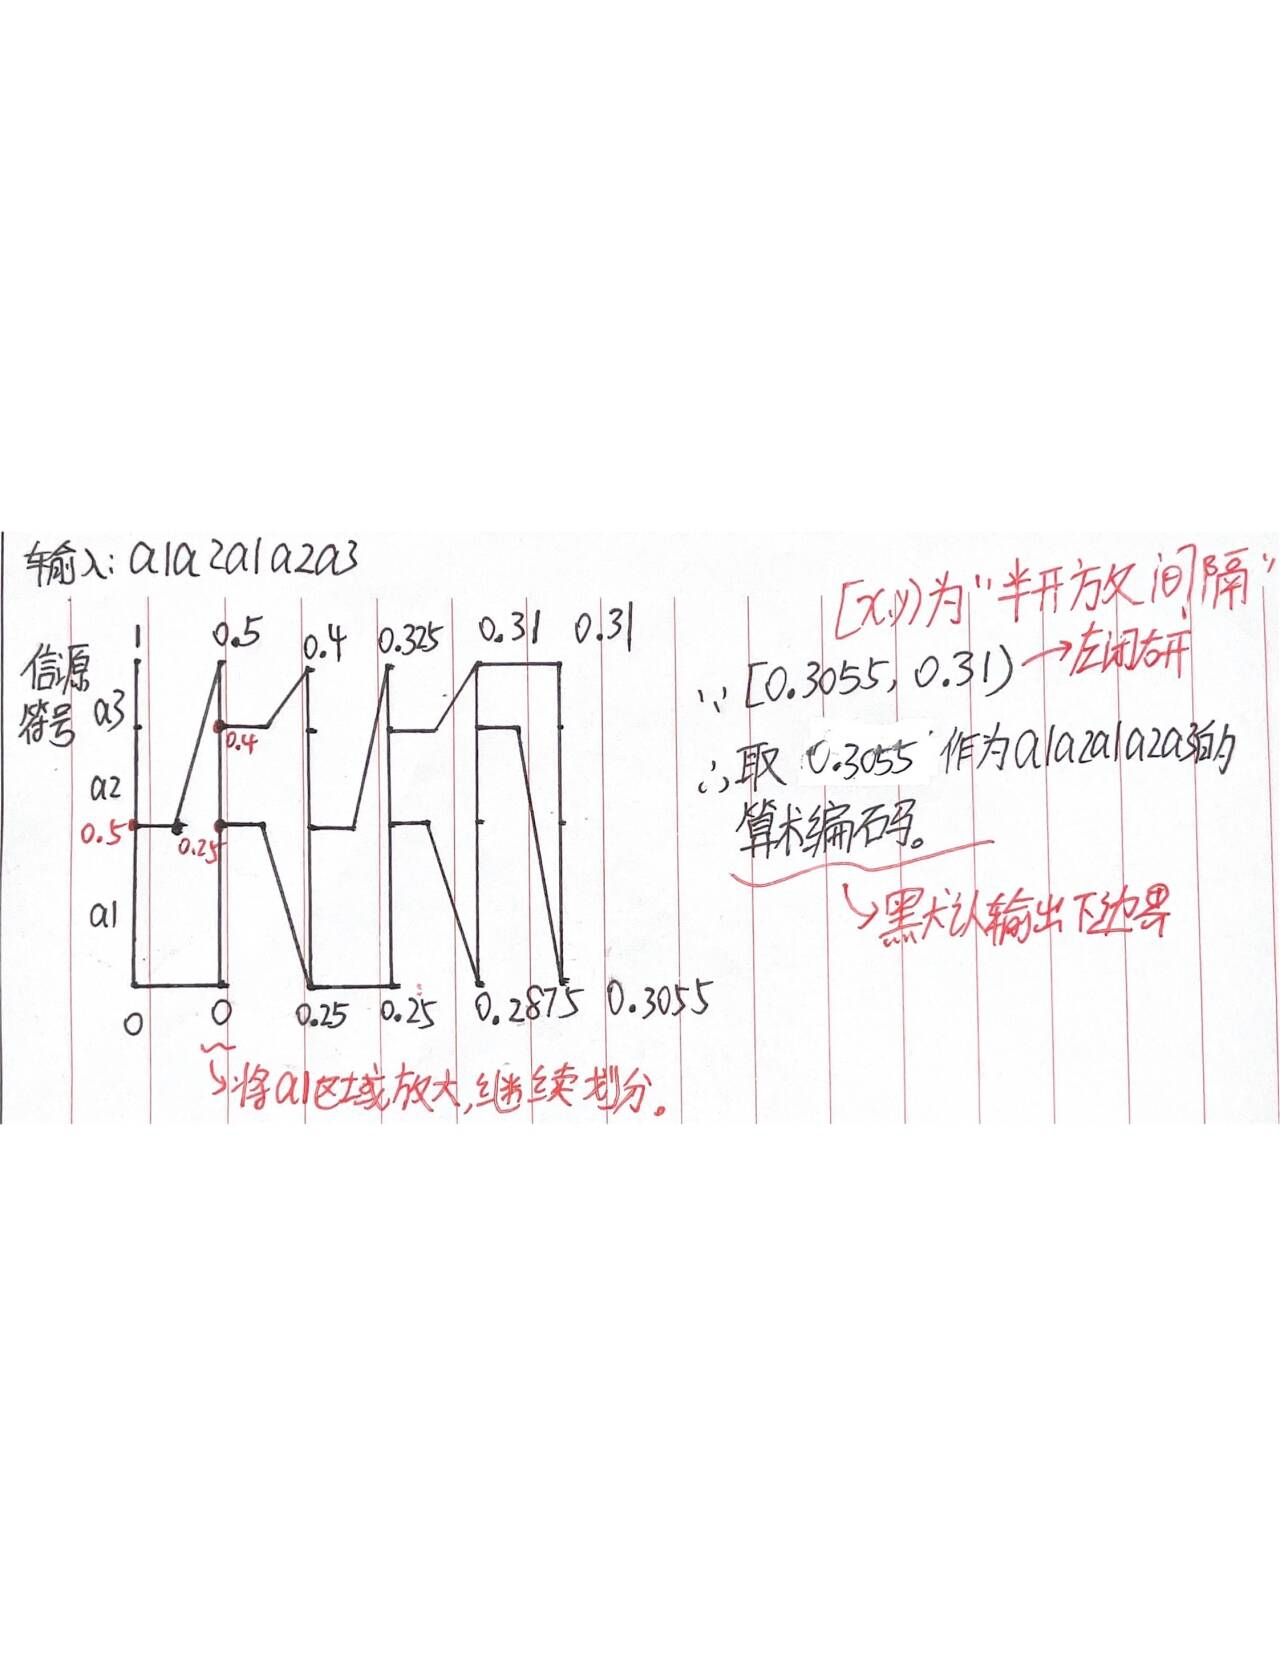 输入：a1a2a1a2a3
[x,y)为"半开放间隔"
信源
符号
1
0.5
0.4
0.325
0.31
0.31
a3
0.4
a2
0.5
0.25
a1
0
0
0.25
0.25
0.2875
0.3055
将a1区域放大,继续划分。
∵ [0.3055, 0.31) →左闭右开
∴取 0.3055 作为a1a2a1a2a3的
算术编码。
默认输出下边界